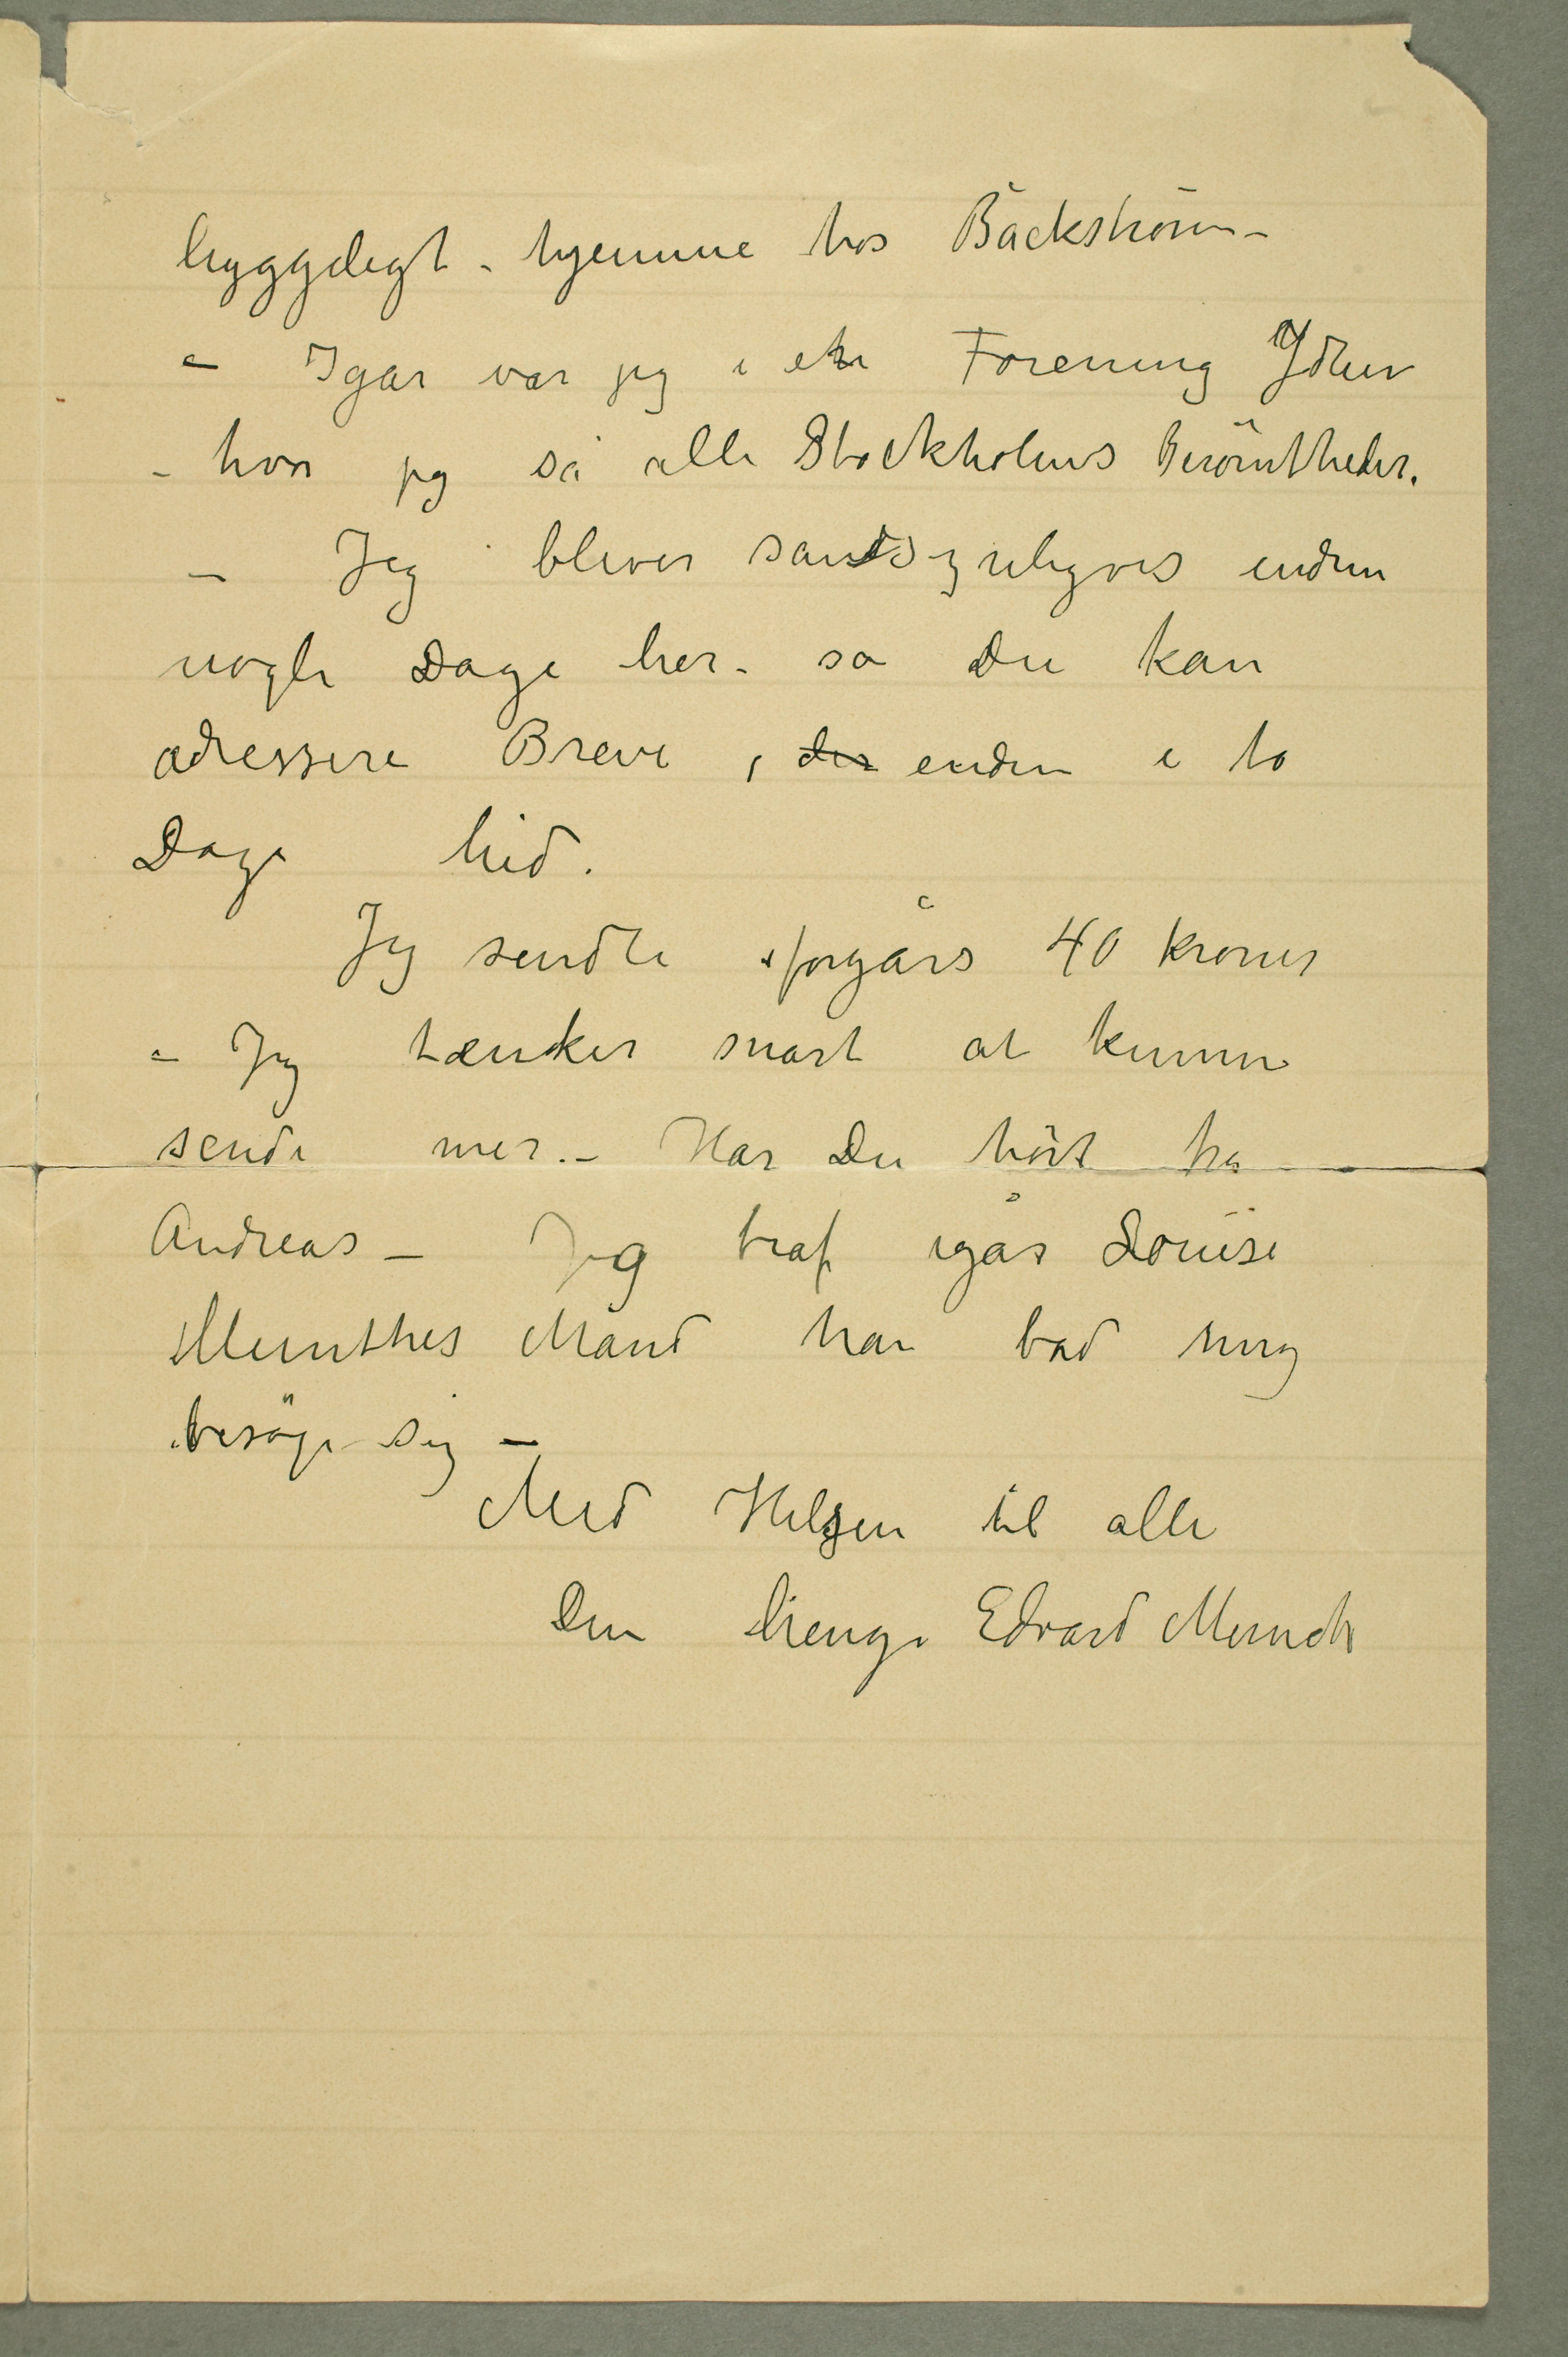 hyggeligt - hjemme hos Bäckström -
- Igår var jeg i en Forening Idun
- hvor jeg så alle Stockholms Berömtheder.
- Jeg bliver sandsynligvis endnu
nogle Dage her - så Du kan
adressere Breve, der endnu i to
Dage hid.
Jeg sendte iforgårs 40 kroner
- Jeg tænker snart at kunne
sende mer. - Har Du hört fra
Andreas - Jeg traf igår Louise
Munthes Mand han bad mig
besöge sig -
Med Hilsen til alle
Din hengi Edvard Munch